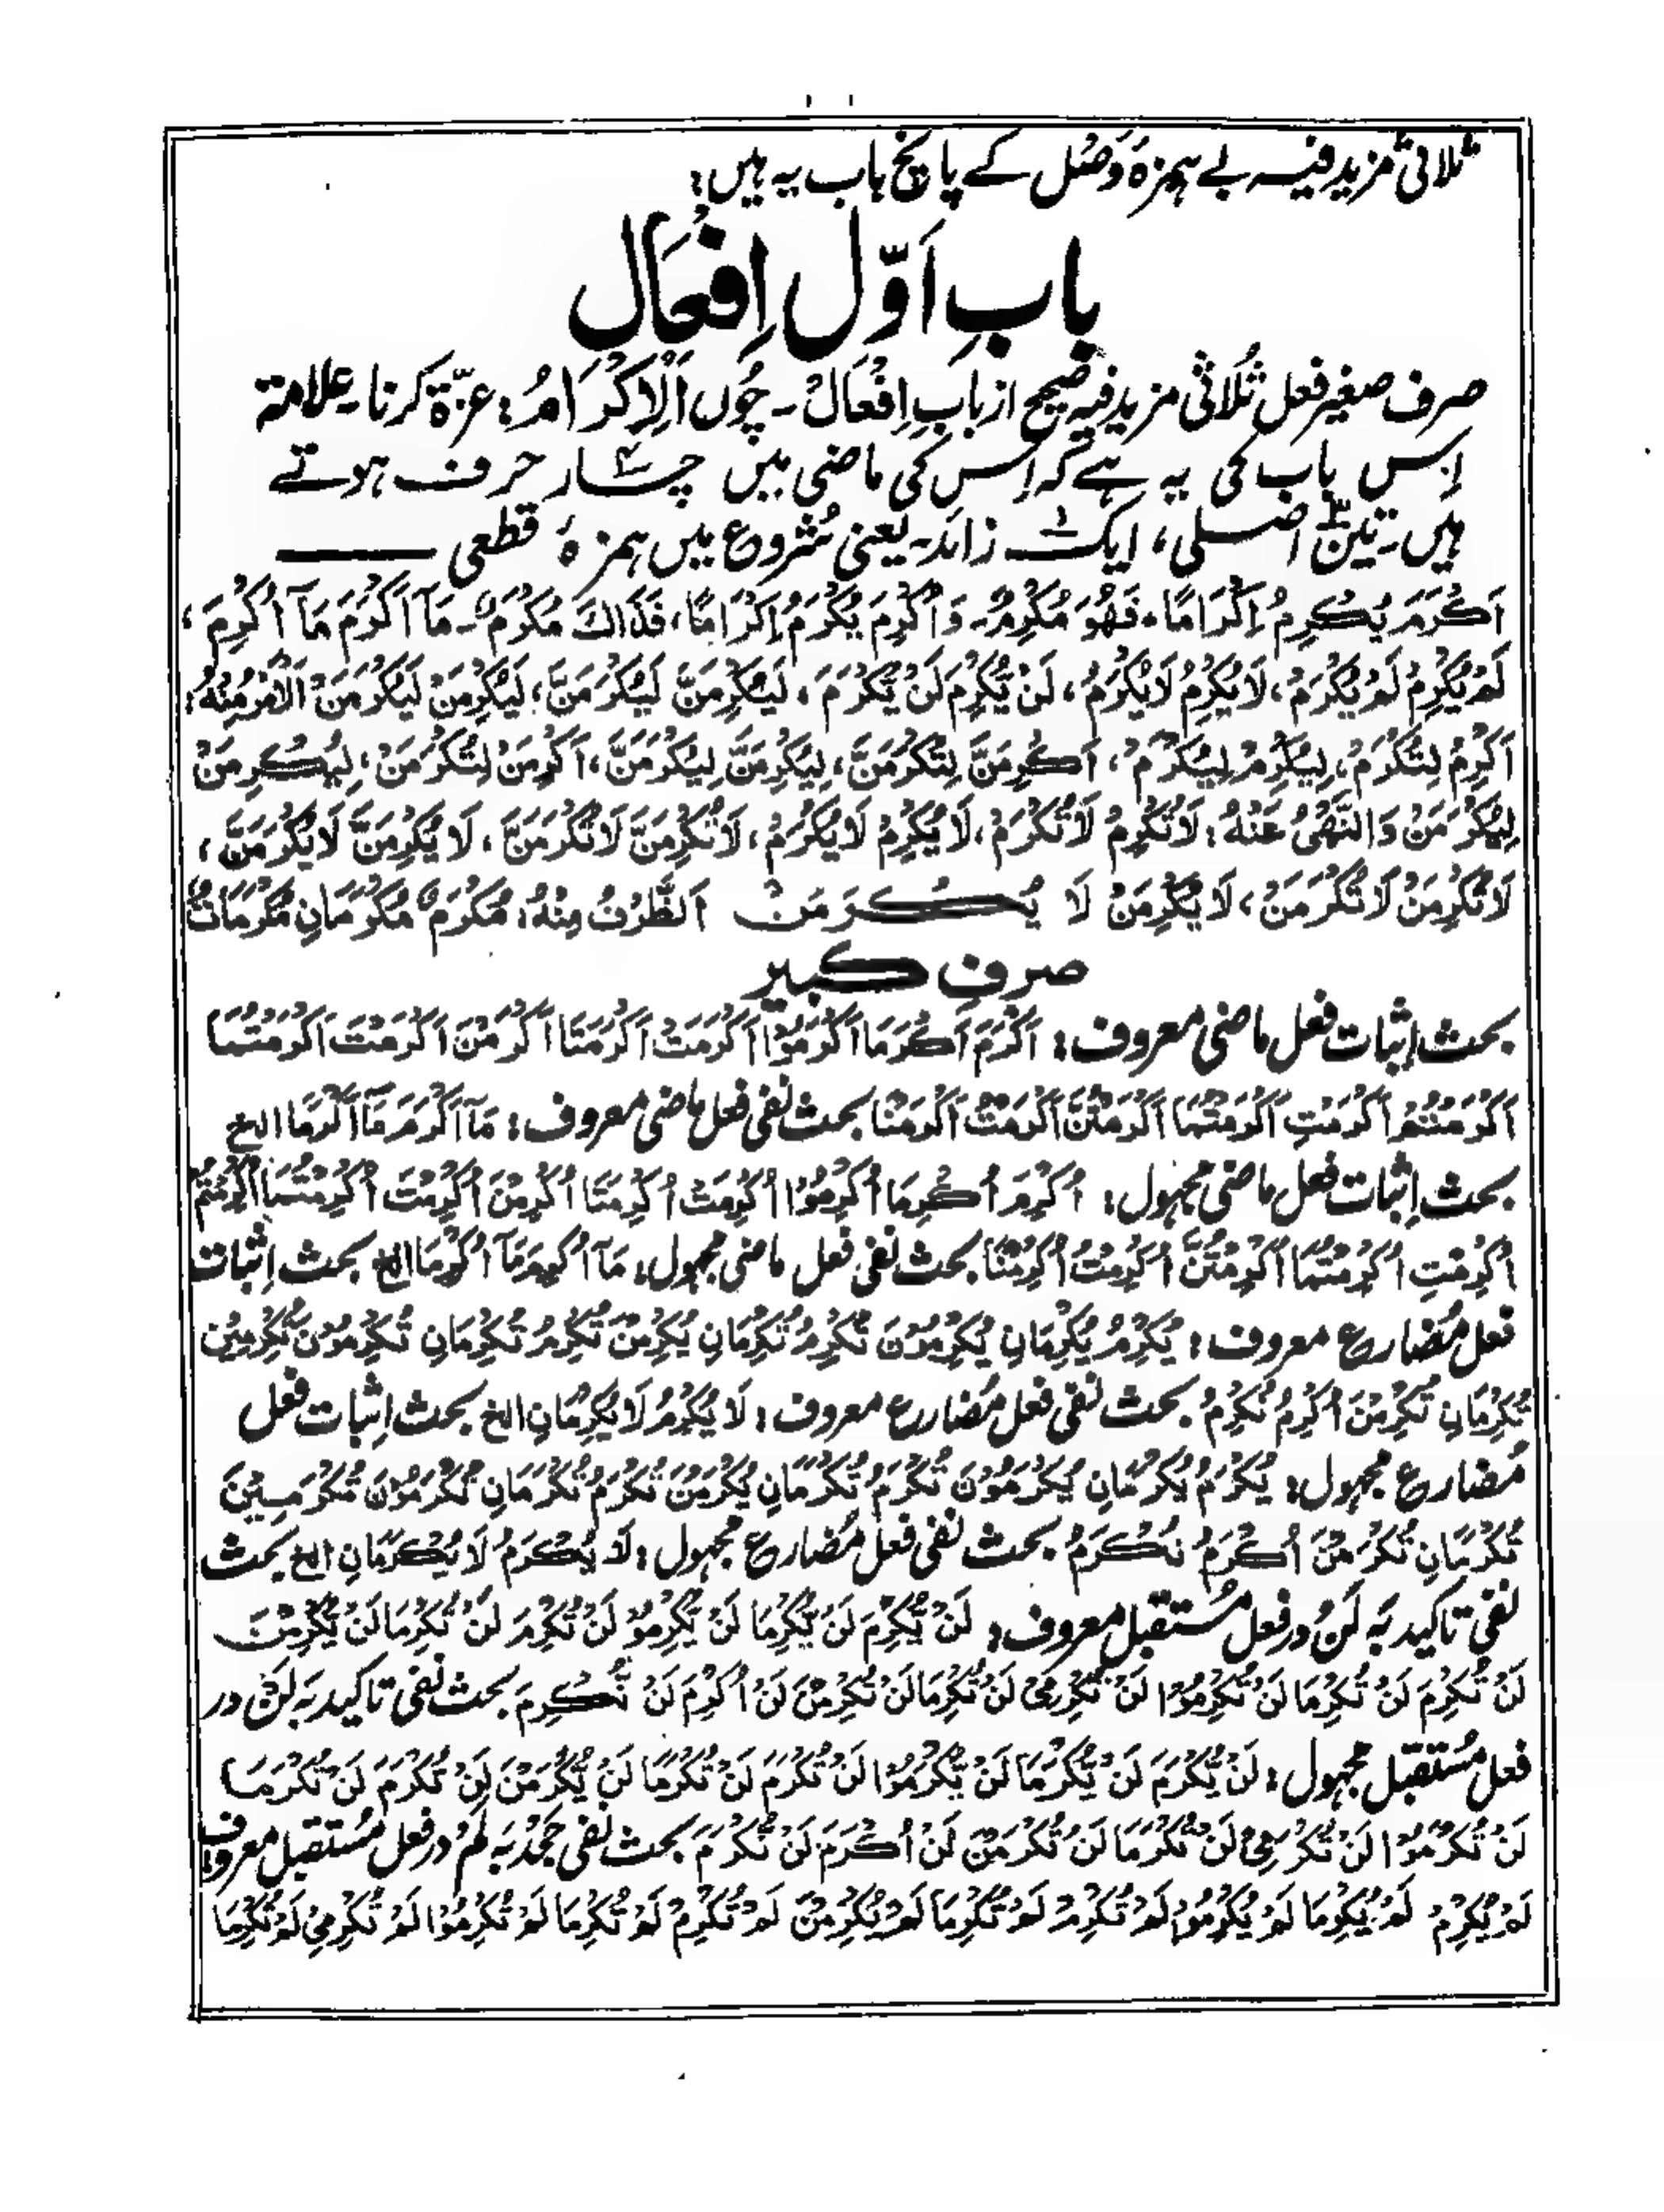 ثلاثی مزید فیہ بے ہمزۂ وصل کے پانچ باب یہ ہیں:
بابِ اَوّل اِفْعَال
صرف صغیر فعل ثُلاثی مزید فیہ صحیح از بابِ اِفْعَالْ۔ چُوں اَلْاِکْرَامُ: عزّۃ کرنا۔ علامۃ
اِس باب کی یہ ہے کہ اِس کی ماضی میں چار حرف ہوتے
ہیں۔ تین اصلی، ایک زائد۔ یعنی شُروع میں ہمزۂ قطعی
اَكْرَمَ يُكْرِمُ اِكْرَامًا، فَهُوَ مُكْرِمٌ۔ وَاُكْرِمَ يُكْرَمُ اِكْرَامًا، فَذَاكَ مُكْرَمٌ۔ مَآ اَكْرَمَ مَآ اُكْرِمَ،
لَمْ يُكْرِمْ لَمْ يُكْرَمْ، لَا يُكْرِمُ لَا يُكْرَمُ، لَنْ يُّكْرِمَ لَنْ يُّكْرَمَ، لَيُكْرِمَنَّ لَيُكْرَمَنَّ، لَيُكْرِمَنْ لَيُكْرَمَنْ اَلْاَمْرُ مِنْهُ:
اَكْرِمْ لِتُكْرَمْ، لِيُكْرِمْ لِيُكْرَمْ، اَكْرِمَنَّ لِتُكْرَمَنَّ، لِيُكْرِمَنَّ لِيُكْرَمَنَّ، اَكْرِمَنْ لِتُكْرَمَنْ، لِيُكْرِمَنْ
لِيُكْرَمَنْ وَالنَّهْيُ عَنْهُ: لَا تُكْرِمْ لَا تُكْرَمْ، لَا يُكْرِمْ لَا يُكْرَمْ، لَا تُكْرِمَنَّ لَا تُكْرَمَنَّ، لَا يُكْرِمَنَّ لَا يُكْرَمَنَّ،
لَا تُكْرِمَنْ لَا تُكْرَمَنْ، لَا يُكْرِمَنْ لَا يُكْرَمَنْ اَلظَّرْفُ مِنْهُ: مُكْرَمٌ مُكْرَمَانِ مُكْرَمَاتٌ
صرفِ کبیر
بحث اِثبات فعل ماضی معروف: اَكْرَمَ اَكْرَمَا اَكْرَمُوْا اَكْرَمَتْ اَكْرَمَتَا اَكْرَمْنَ اَكْرَمْتَ اَكْرَمْتُمَا
اَكْرَمْتُمْ اَكْرَمْتِ اَكْرَمْتُمَا اَكْرَمْتُنَّ اَكْرَمْتُ اَكْرَمْنَا بحث نفی فعل ماضی معروف: مَآ اَكْرَمَ مَآ اَكْرَمَا الخ
بحث اِثبات فعل ماضی مجہول: اُكْرِمَ اُكْرِمَا اُكْرِمُوْا اُكْرِمَتْ اُكْرِمَتَا اُكْرِمْنَ اُكْرِمْتَ اُكْرِمْتُمَا اُكْرِمْتُمْ
اُكْرِمْتِ اُكْرِمْتُمَا اُكْرِمْتُنَّ اُكْرِمْتُ اُكْرِمْنَا بحث نفی فعل ماضی مجہول: مَآ اُكْرِمَ مَآ اُكْرِمَا الخ بحث اِثبات
فعل مُضارع معروف: يُكْرِمُ يُكْرِمَانِ يُكْرِمُوْنَ تُكْرِمُ تُكْرِمَانِ يُكْرِمْنَ تُكْرِمُ تُكْرِمَانِ تُكْرِمُوْنَ تُكْرِمِيْنَ
تُكْرِمَانِ تُكْرِمْنَ اُكْرِمُ نُكْرِمُ بحث نفی فعل مُضارع معروف: لَا يُكْرِمُ لَا يُكْرِمَانِ الخ بحث اِثبات فعل
مُضارع مجہول: يُكْرَمُ يُكْرَمَانِ يُكْرَمُوْنَ تُكْرَمُ تُكْرَمَانِ يُكْرَمْنَ تُكْرَمُ تُكْرَمَانِ تُكْرَمُوْنَ تُكْرَمِيْنَ
تُكْرَمَانِ تُكْرَمْنَ اُكْرَمُ نُكْرَمُ بحث نفی فعل مُضارع مجہول: لَا يُكْرَمُ لَا يُكْرَمَانِ الخ بحث
نفی تاکید بَہ لَنْ در فعل مُستقبل معروف: لَنْ يُّكْرِمَ لَنْ يُّكْرِمَا لَنْ يُّكْرِمُوْا لَنْ تُكْرِمَ لَنْ تُكْرِمَا لَنْ يُّكْرِمْنَ
لَنْ تُكْرِمَ لَنْ تُكْرِمَا لَنْ تُكْرِمُوْا لَنْ تُكْرِمِيْ لَنْ تُكْرِمَا لَنْ تُكْرِمْنَ لَنْ اُكْرِمَ لَنْ نُّكْرِمَ بحث نفی تاکید بَہ لَنْ در
فعل مُستقبل مجہول: لَنْ يُّكْرَمَ لَنْ يُّكْرَمَا لَنْ يُّكْرَمُوْا لَنْ تُكْرَمَ لَنْ تُكْرَمَا لَنْ يُّكْرَمْنَ لَنْ تُكْرَمَ لَنْ تُكْرَمَا
لَنْ تُكْرَمُوْا لَنْ تُكْرَمِيْ لَنْ تُكْرَمَا لَنْ تُكْرَمْنَ لَنْ اُكْرَمَ لَنْ نُّكْرَمَ بحث نفی جحد بَہ لَمْ در فعل مُستقبل معروف:
لَمْ يُكْرِمْ لَمْ يُكْرِمَا لَمْ يُكْرِمُوْا لَمْ تُكْرِمْ لَمْ تُكْرِمَا لَمْ يُكْرِمْنَ لَمْ تُكْرِمْ لَمْ تُكْرِمَا لَمْ تُكْرِمُوْا لَمْ تُكْرِمِيْ لَمْ تُكْرِمَا